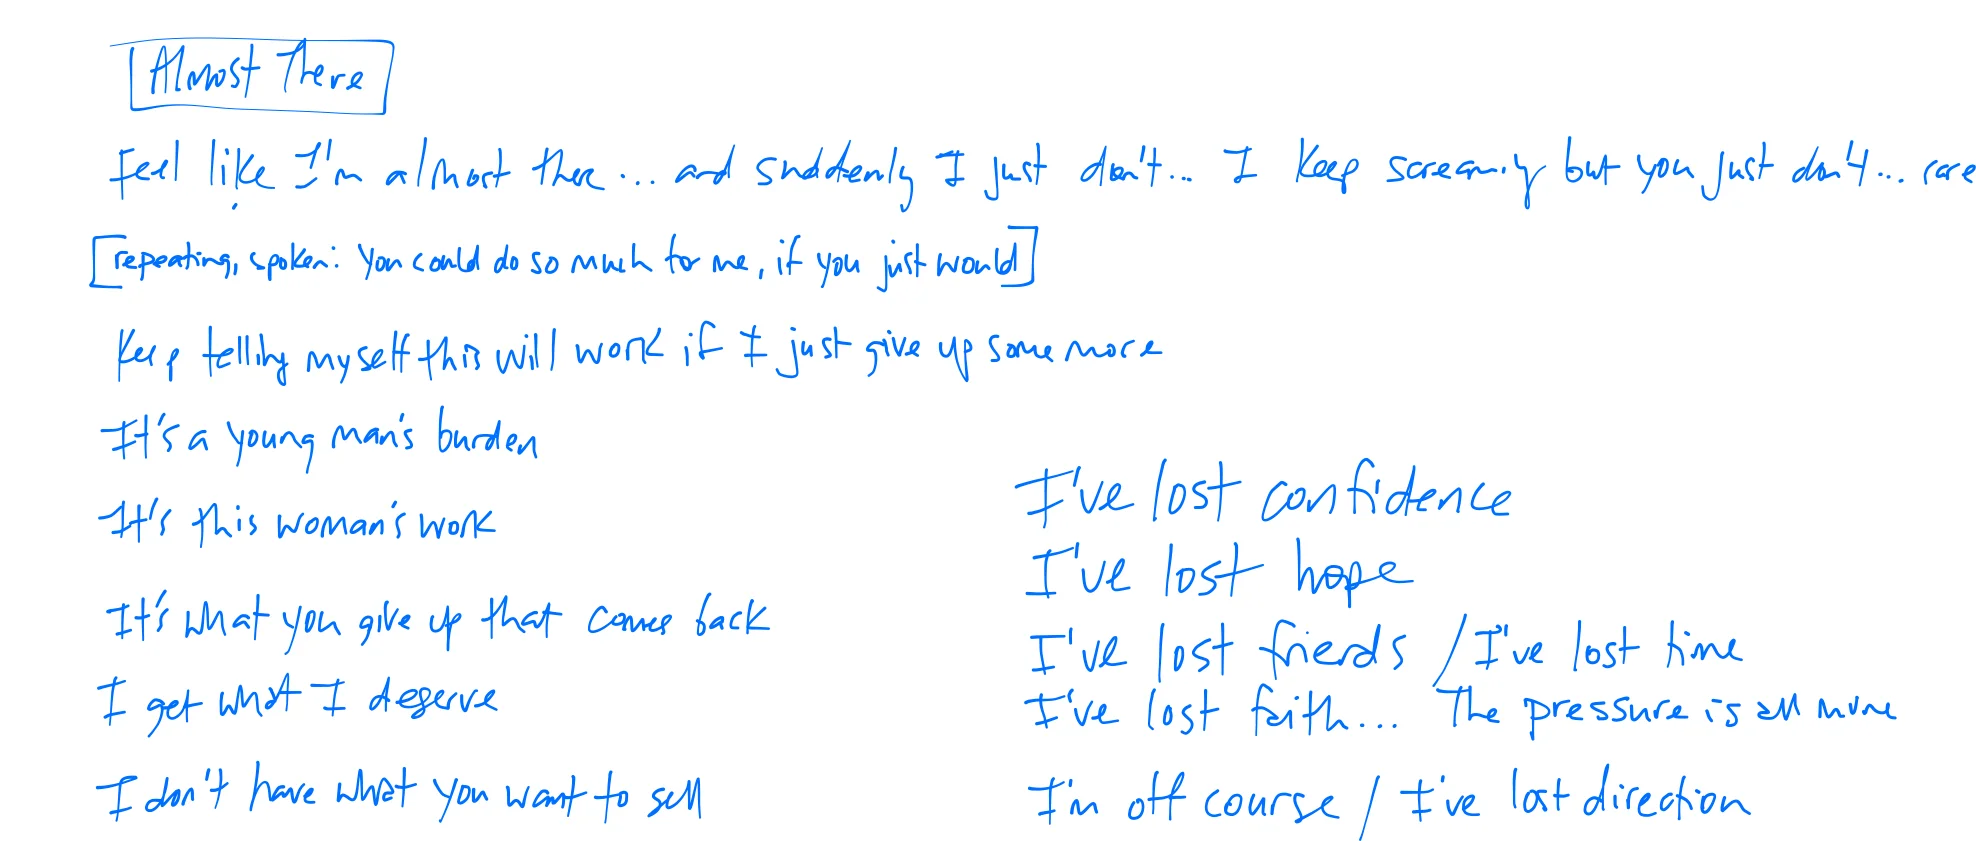 Almost There
Feel like I'm almost there... and suddenly I just don't... I keep screaming but you just don't... care
[repeating, spoken: you could do so much for me, if you just would]
Keep telling myself this will work if I just give up some more
It's a young man's burden
It's this woman's work
It's what you give up that comes back
I get what I deserve
I don't have what you want to sell
I've lost confidence
I've lost hope
I've lost friends / I've lost time
I've lost faith... The pressure is all mine
I'm off course / I've lost direction